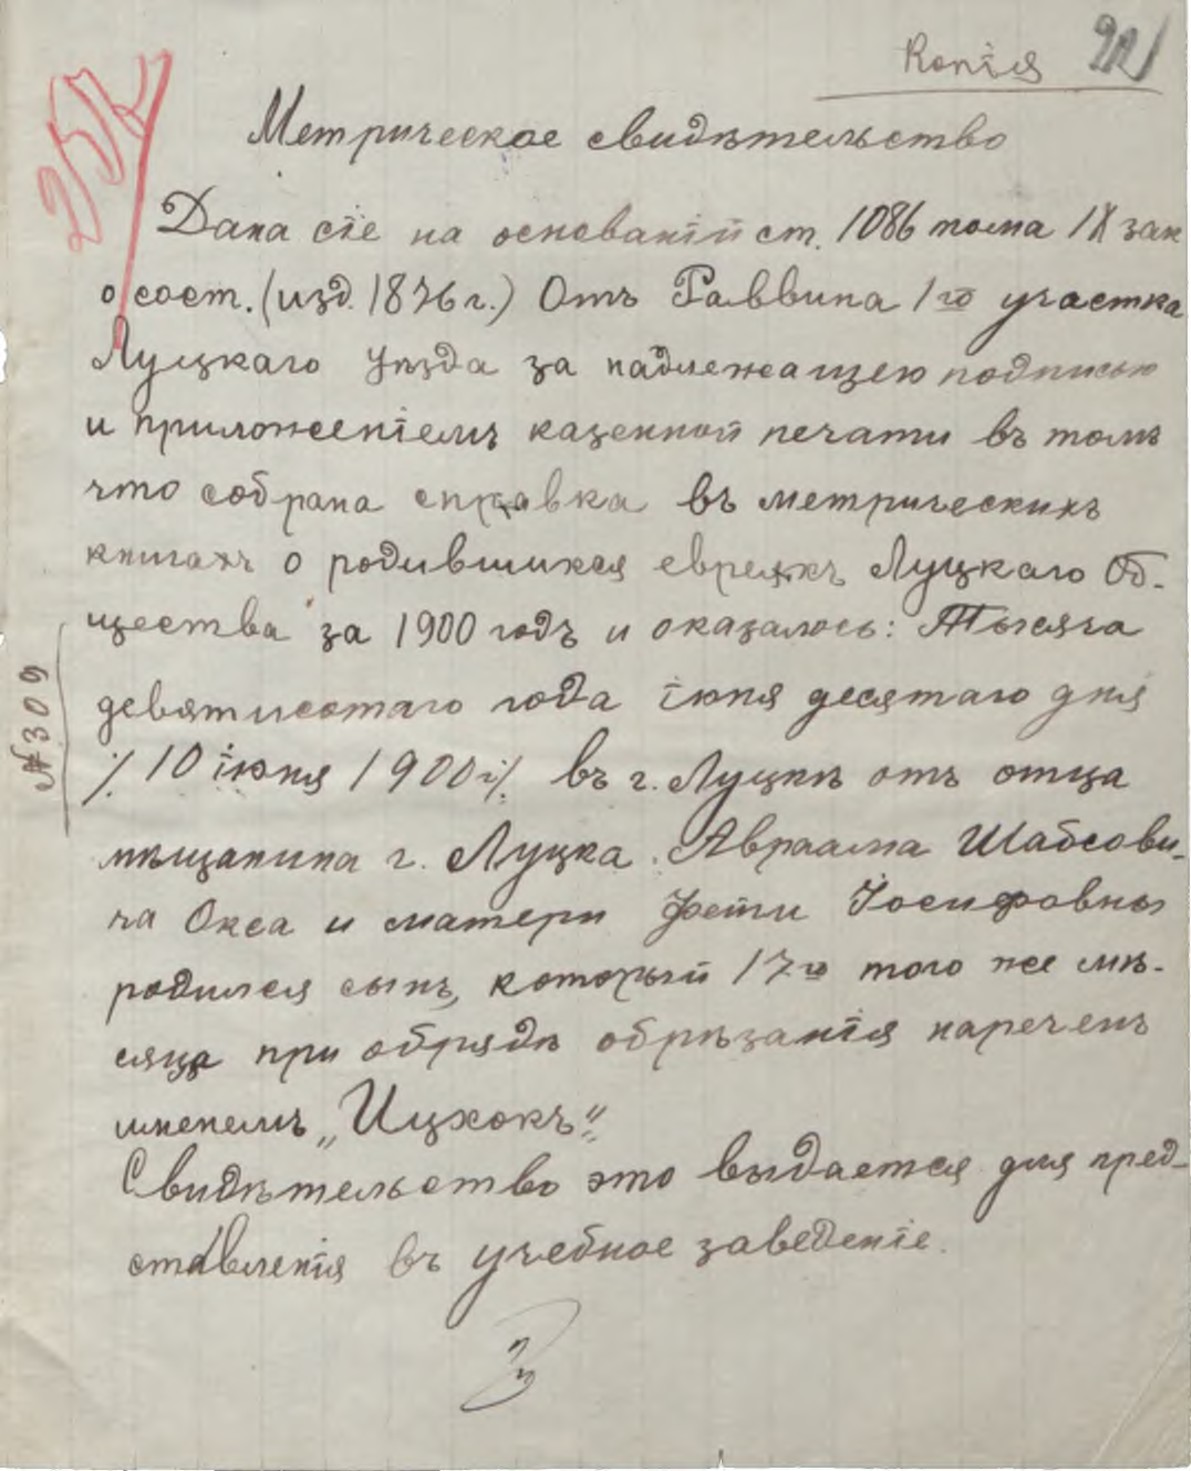 Копія
Метрическое свидѣтельство
Дана сіе на основаніи ст. 1086 тома IX зак
о сост. (изд. 1876 г.) Отъ Раввина 1го участка
Луцкаго Уѣзда за надлежащею подписью
и приложеніемъ казенной печати въ томъ
что собрана справка въ метрическихъ
книгахъ о родившихся евреяхъ Луцкаго Об-
щества за 1900 годъ и оказалось: Тысяча
девятисотаго года іюня десятаго дня
№ 309
/. 10 іюня 1900 г/. въ г. Луцкѣ отъ отца
мѣщанина г. Луцка Авраама Шабсови-
ча Окса и матери Іосифовны
родился сынъ, который 17го того же мѣ-
сяца при обрядѣ обрѣзанія нареченъ
именемъ „Ицхокъ“
Свидѣтельство это выдается для пред-
ставленія въ учебное заведеніе.